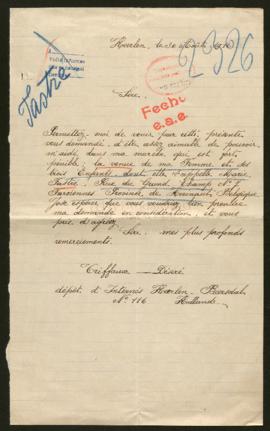 Heerlen, le 30 Août 1916
23326
Tastre
Sire,
Fecho
e.a.e.
Permettez, moi de venir par cette présente
vous demander, d'être assez aimable de pouvoir
m'aider dans ma marche, qui est fort
possible; la venue de ma Femme et des
trois Enfants, dont elle s'appelle Marie
Tastre, Rue du Grand Champ N°
Farciennes Province de Hainaut, Belgique
J'ose espérer que vous voudrez bien prendre
ma demande en considération, et vous
prie d'agréer Sire, mes plus profonds
remerciements.
Triffaux — Désiré
dépôt d'Internés Heerlen
N° 116 Hollande